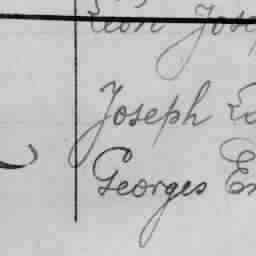 Léon Jose
Joseph Ed
Georges En